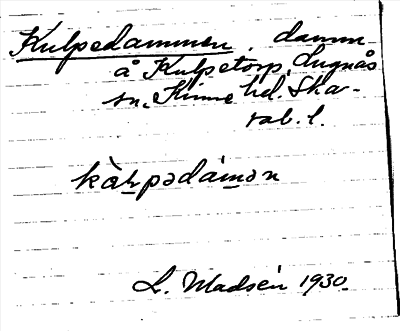 Kulpedammen, damm
å Kulpetorp, Lugnås
sn, Kinne hd. Ska-
rab. l.
L. Madsén 1930.